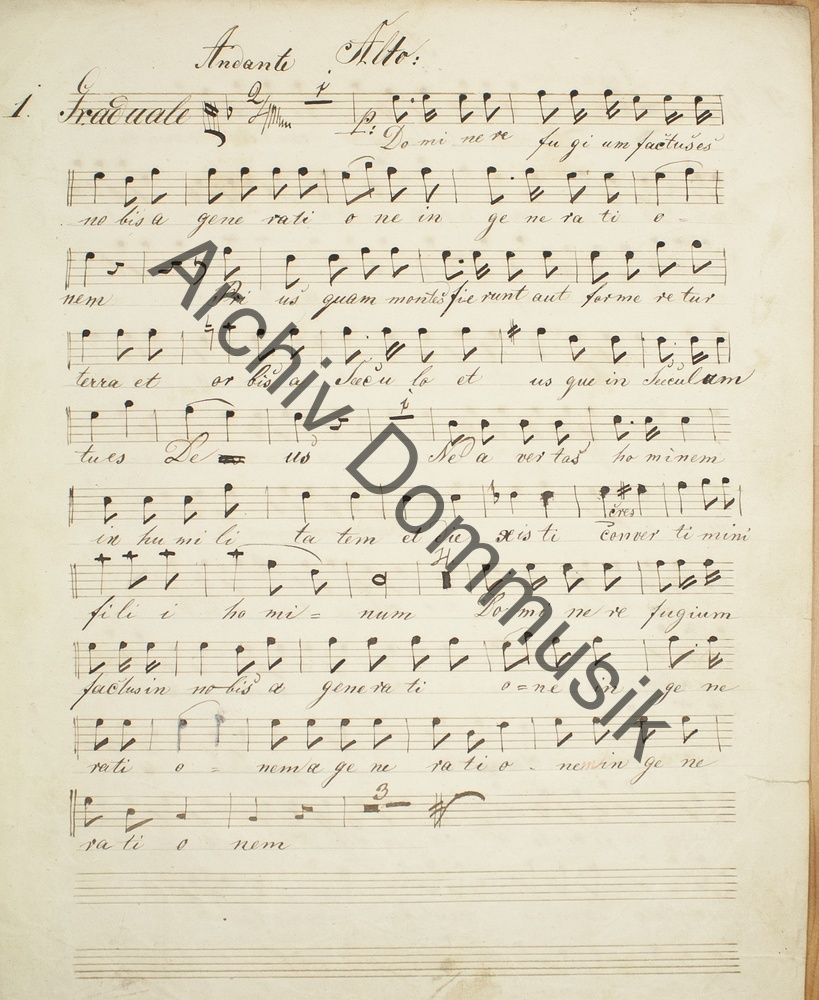 Andante Alto:
1. Graduale 2/4 1 P:
Do mi ne re fu gi um factus es
no bis a gene rati o ne in ge ne ra ti o =
nem Pri us quam montes fie runt aut forme re tur
terra et or bis a Saecu lo et us que in Saeculum
1
tu es De us Ne a ver tas ho minem
cres
in hu mi li ta tem et di xis ti conver ti mini
4
fi li i ho mi = num Do mi ne re fugium
factus in no bis a gene ra ti o = ne in ge ne
rati o = nem a ge ne ra ti o - nem in ge ne
3
ra ti o nem
Archiv Dommusik